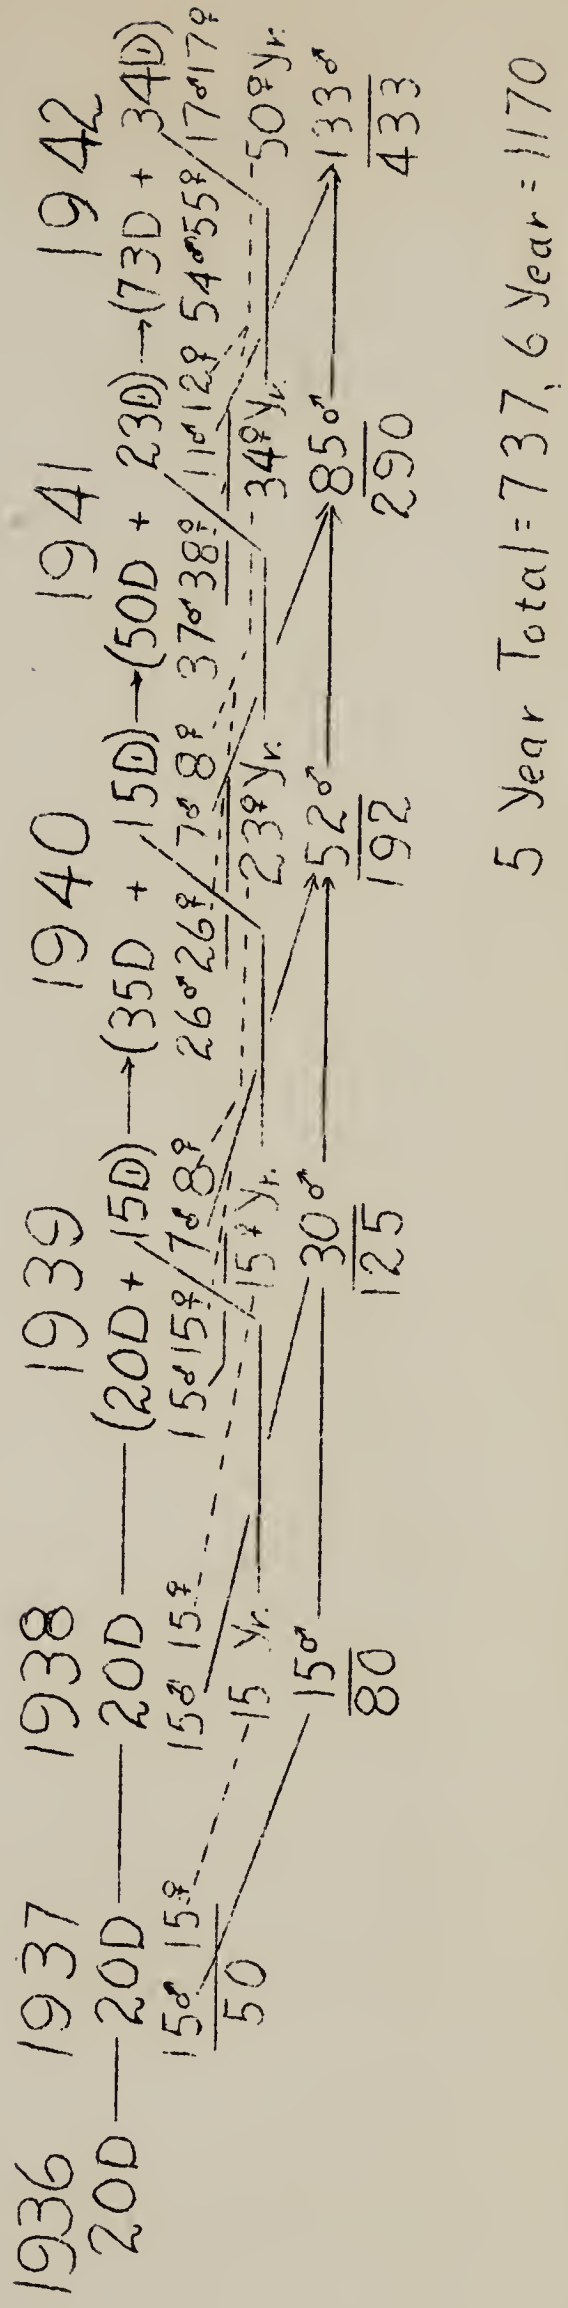 1936 1937 1938 1939 1940 1941 1942
20D — 20D — 20D — (20D + 15D) → (35D + 15D) → (50D + 23D) → (73D + 34D)
15♂ 15♀ 15♂ 15♀ 15♂ 15♀ / 7♂ 8♀ 26♂ 26♀ / 7♂ 8♀ 37♂ 38♀ / 11♂ 12♀ 54♂ 55♀ / 17♂ 17♀
50 15 Yr. 15♀ Yr. 23♀ Yr. 34♀ Yr. 50♀ Yr.
15♂ 30♂ 52♂ 85♂ 133♂
80 125 192 290 433
5 Year Total = 737, 6 Year = 1170